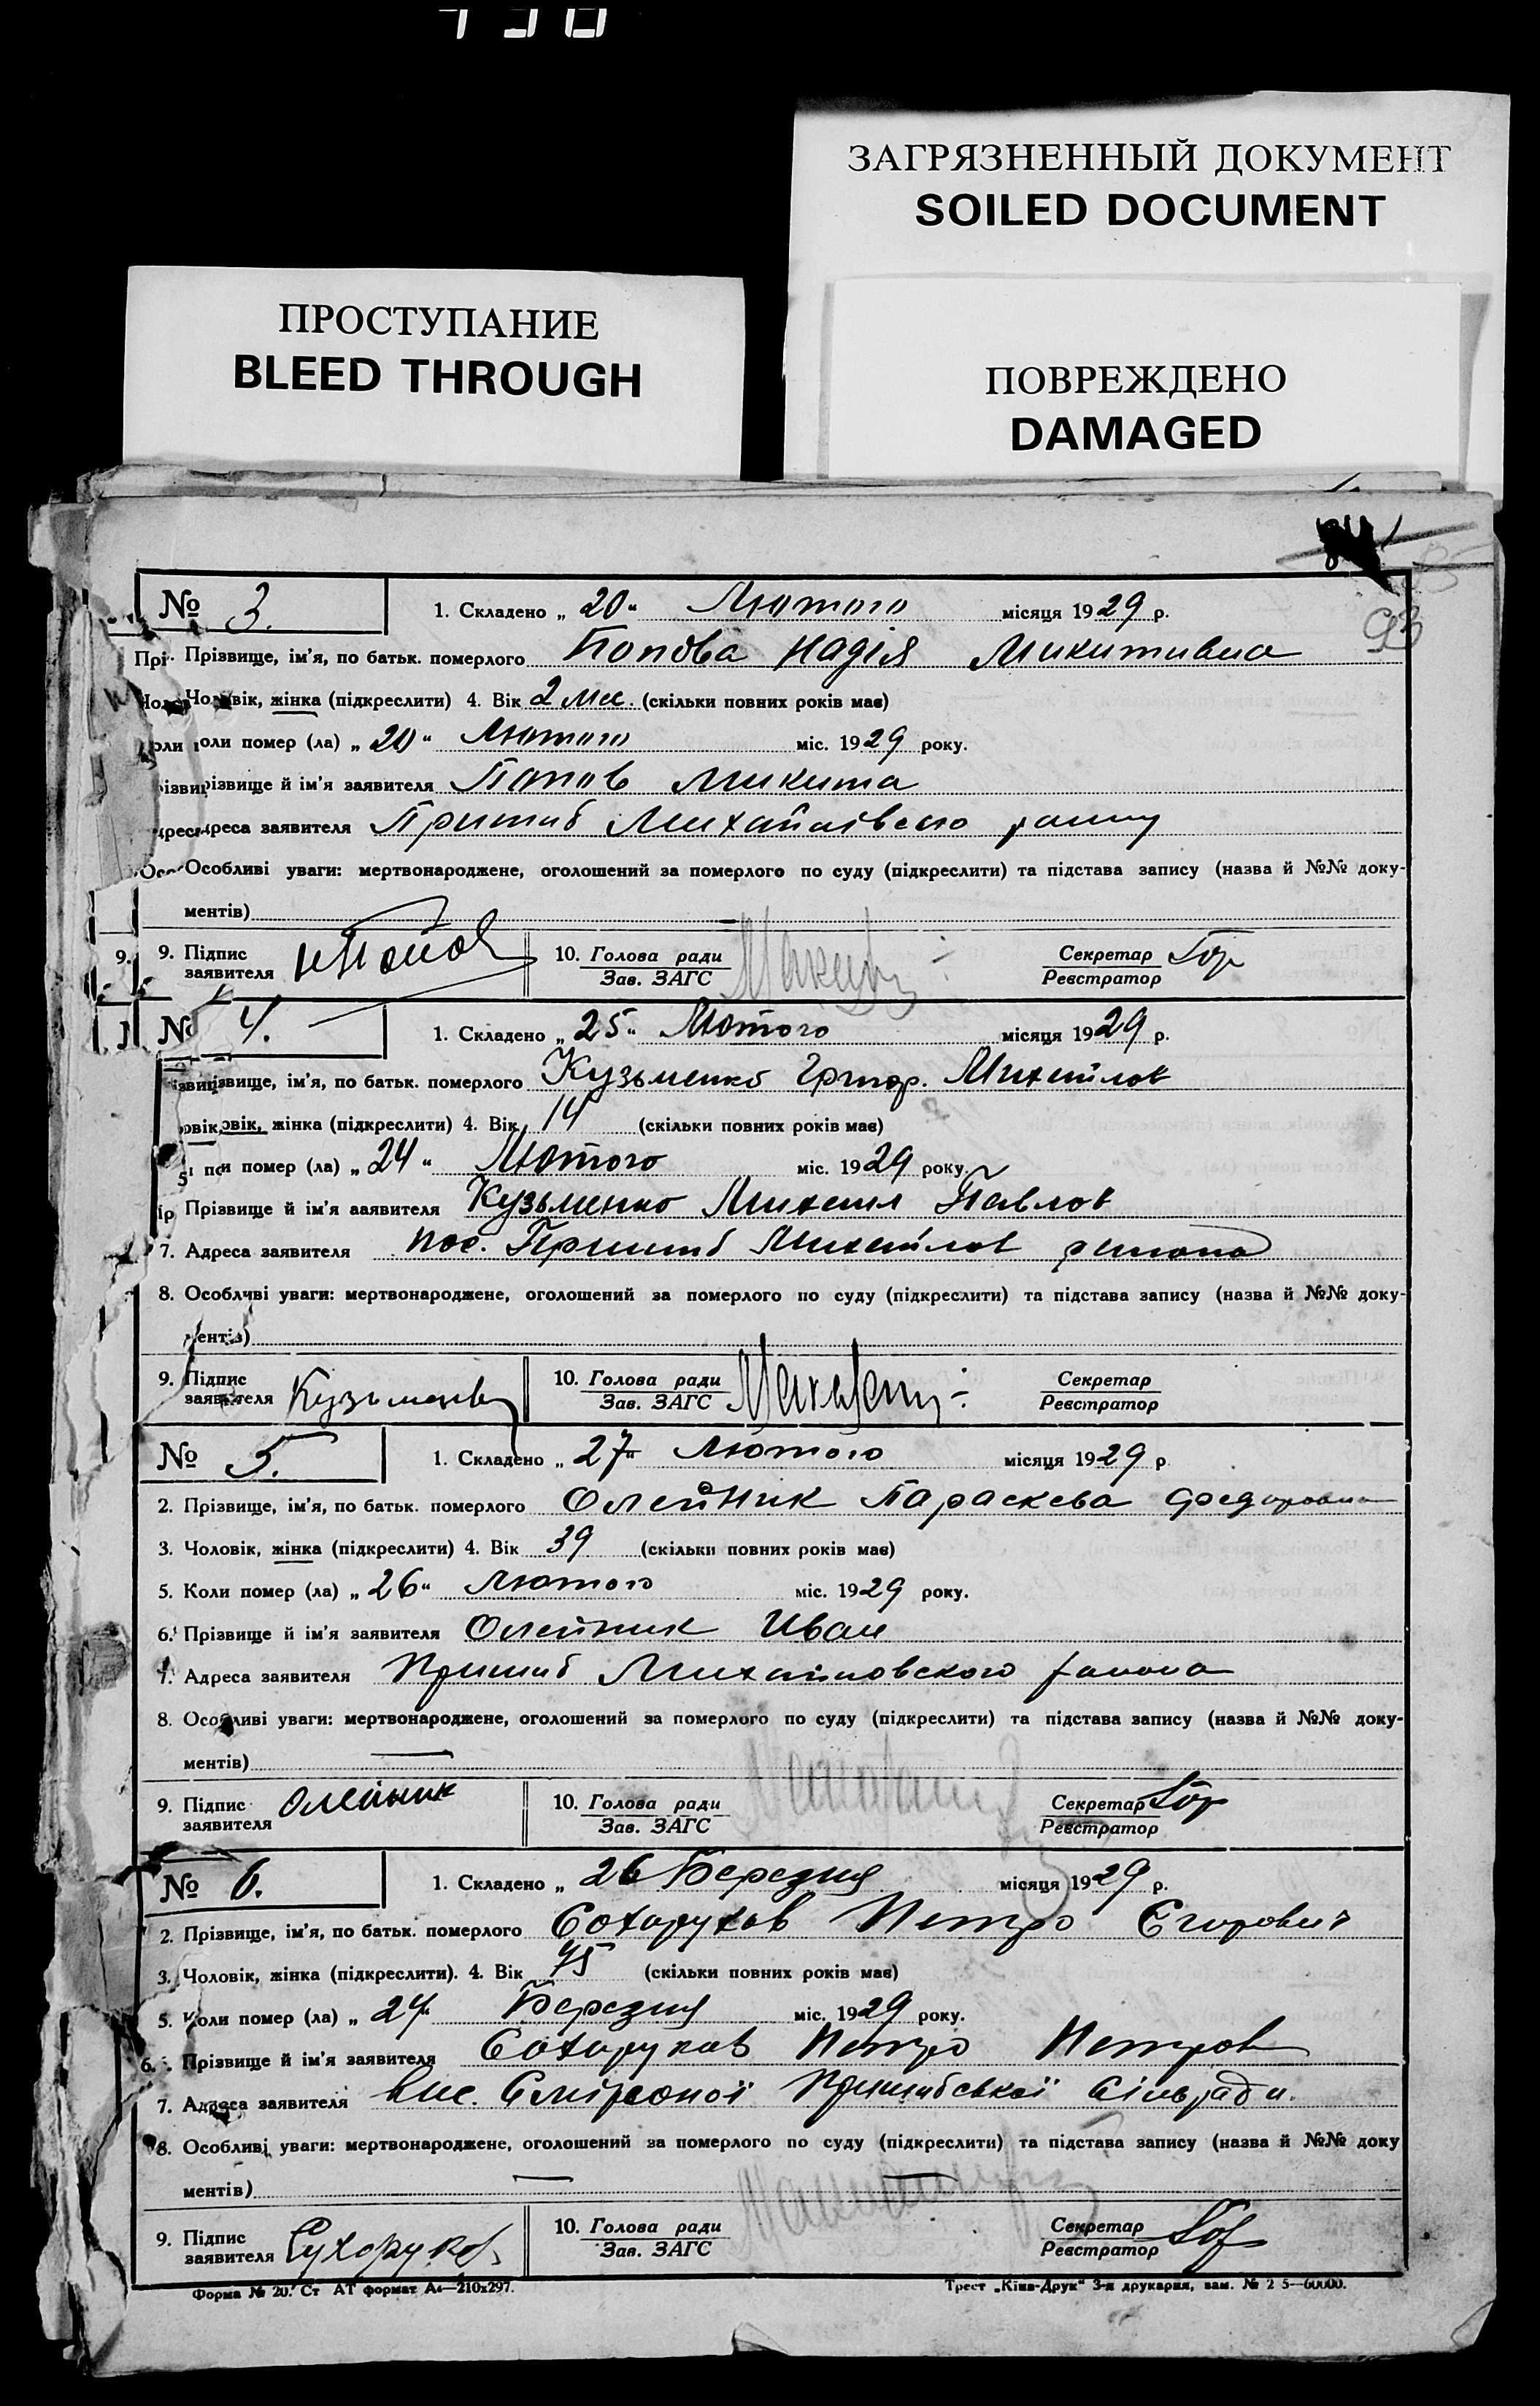 ЗАГРЯЗНЕННЫЙ ДОКУМЕНТ
SOILED DOCUMENT
ПРОСТУПАНИЕ
BLEED THROUGH
ПОВРЕЖДЕНО
DAMAGED
93
№ 3. 1. Складено „ 20 “ Лютого місяця 1929 р.
Прізвище, ім’я, по батьк. померлого Попова Надія Микитивна
Чоловік, жінка (підкреслити) 4. Вік 2 мес. (скільки повних років має)
оли помер (ла) „ 20 “ Лютого міс. 1929 року.
різвище й ім’я заявителя Попов Микита
дреса заявителя Пришиб Михайлівсько району
Особливі уваги: мертвонароджене, оголошений за померлого по суду (підкреслити) та підстава запису (назва й №№ доку-
ментів)
9. Підпис заявителя НПопов 10. Голова ради Зав. ЗАГС Секретар Реєстратор Гор
№ 4. 1. Складено „ 25 “ Лютого місяця 1929 р.
ізвище, ім’я, по батьк. померлого Кузьменко Григор. Михайлов
овік, жінка (підкреслити) 4. Вік 14 (скільки повних років має)
и помер (ла) „ 24 “ Лютого міс. 1929 року.
Прізвище й ім’я заявителя Кузьменко Михаил Павлов
7. Адреса заявителя пос. Пришиб Михайлов района
8. Особливі уваги: мертвонароджене, оголошений за померлого по суду (підкреслити) та підстава запису (назва й №№ доку-
ментів)
9. Підпис заявителя Кузьменко 10. Голова ради Зав. ЗАГС Секретар Реєстратор
№ 5. 1. Складено „ 27 “ Лютого місяця 1929 р
2. Прізвище, ім’я, по батьк. померлого Олейник Параскева Федоровна
3. Чоловік, жінка (підкреслити) 4. Вік 39 (скільки повних років має)
5. Коли помер (ла) „ 26 “ Лютого міс. 1929 року.
6. Прізвище й ім’я заявителя Олейник Иван
7. Адреса заявителя Пришиб Михайловского района
8. Особливі уваги: мертвонароджене, оголошений за померлого по суду (підкреслити) та підстава запису (назва й №№ доку-
ментів)
9. Підпис заявителя Олейник 10. Голова ради Зав. ЗАГС Секретар Реєстратор Гор
№ 6. 1. Складено „ 26 Березня місяця 1929 р.
2. Прізвище, ім’я, по батьк. померлого Сохоруков Петро Єгорович
3. Чоловік, жінка (підкреслити). 4. Вік 45 (скільки повних років має)
5. Коли помер (ла) „ 24 “ Березня міс. 1929 року.
6. Прізвище й ім’я заявителя Сохоруков Петро Петров
7. Адреса заявителя вис. Пришибської Сільради.
8. Особливі уваги: мертвонароджене, оголошений за померлого по суду (підкреслити) та підстава запису (назва й №№ доку
ментів)
9. Підпис заявителя Сухоруков 10. Голова ради Зав. ЗАГС Секретар Реєстратор Гор
Форма № 20. Ст АТ формат А4—210х297. Трест „Київ-Друк“ 3-я друкарня, зам. № 2 5—60000.